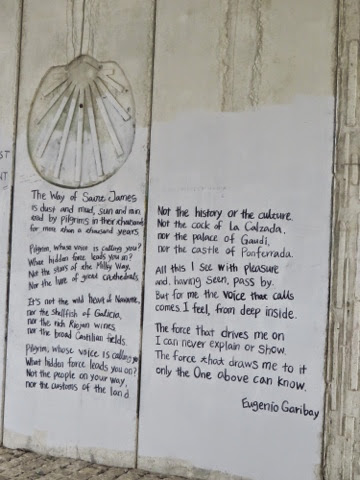 ST
NT
The Way of Saint James
is dust and mud, sun and rain
trod by pilgrims in their thousands
for more than a thousand years.
Pilgrim, whose voice is calling you?
What hidden force leads you on?
Not the stars of the Milky Way,
Nor the lure of great cathedrals.
It's not the wild heart of Navarre,
nor the shellfish of Galicia,
nor the rich Riojan wines
nor the broad Castilian fields.
Pilgrim, whose voice is calling you
What hidden force leads you on?
Not the people on your way,
nor the customs of the land
Not the history or the culture.
Not the cock of La Calzada,
nor the palace of Gaudi,
nor the castle of Ponferrada.
All this I see with pleasure
and, having seen, pass by.
But for me the voice that calls
comes I feel, from deep inside.
The force that drives me on
I can never explain or show.
The force that draws me to it
only the One above can know.
Eugenio Garibay